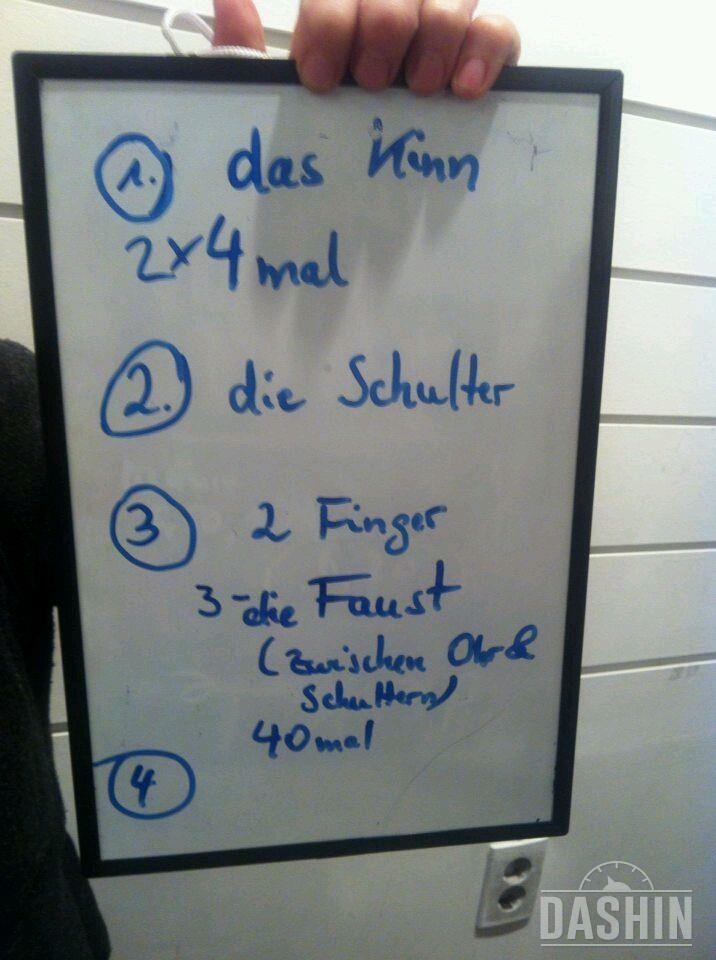 1. das Kinn
2x4mal
2. die Schulter
3 2 Finger
3-die Faust
(zwischen Ohr &
Schultern)
40mal
4
DASHIN